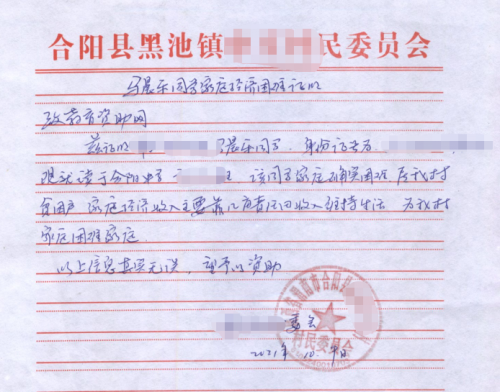 合阳县黑池镇 民委员会
马晨乐同学家庭经济困难证明
致教育资助网
兹证明 马晨乐同学,身份证号为
现就读于合阳中学 该同学家庭确实困难 在我村
贫困户 家庭经济收入主要靠 收入维持生活 为我村
家庭困难家庭.
以上信息真实无误,望予以资助
委会
2021年10.
村民委员会